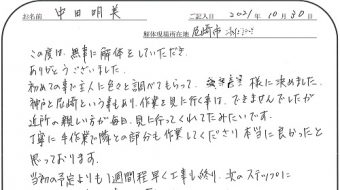 お名前 中田明美 ご記入日 2021年10月30日
解体現場所在地 尼崎市
この度は、無事に解体をしていただき、
ありがとうございました。
初めての事で主人に色々と調べてもらって、 様に決めました。
神戸と尼崎という事もあり、作業を見に行く事は、できませんでしたが
近所の親しい方が毎日、見に行ってくれてたみたいです。
丁寧に手作業で隣との部分も作業してくださり本当に良かったと
思っております。
当初の予定よりも1週間程早く工事も終り、次のステップに